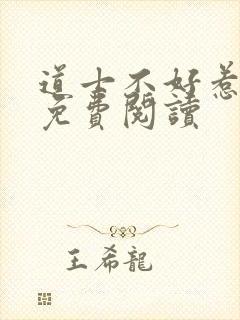 道士不好惹
免費閱讀
王希龍